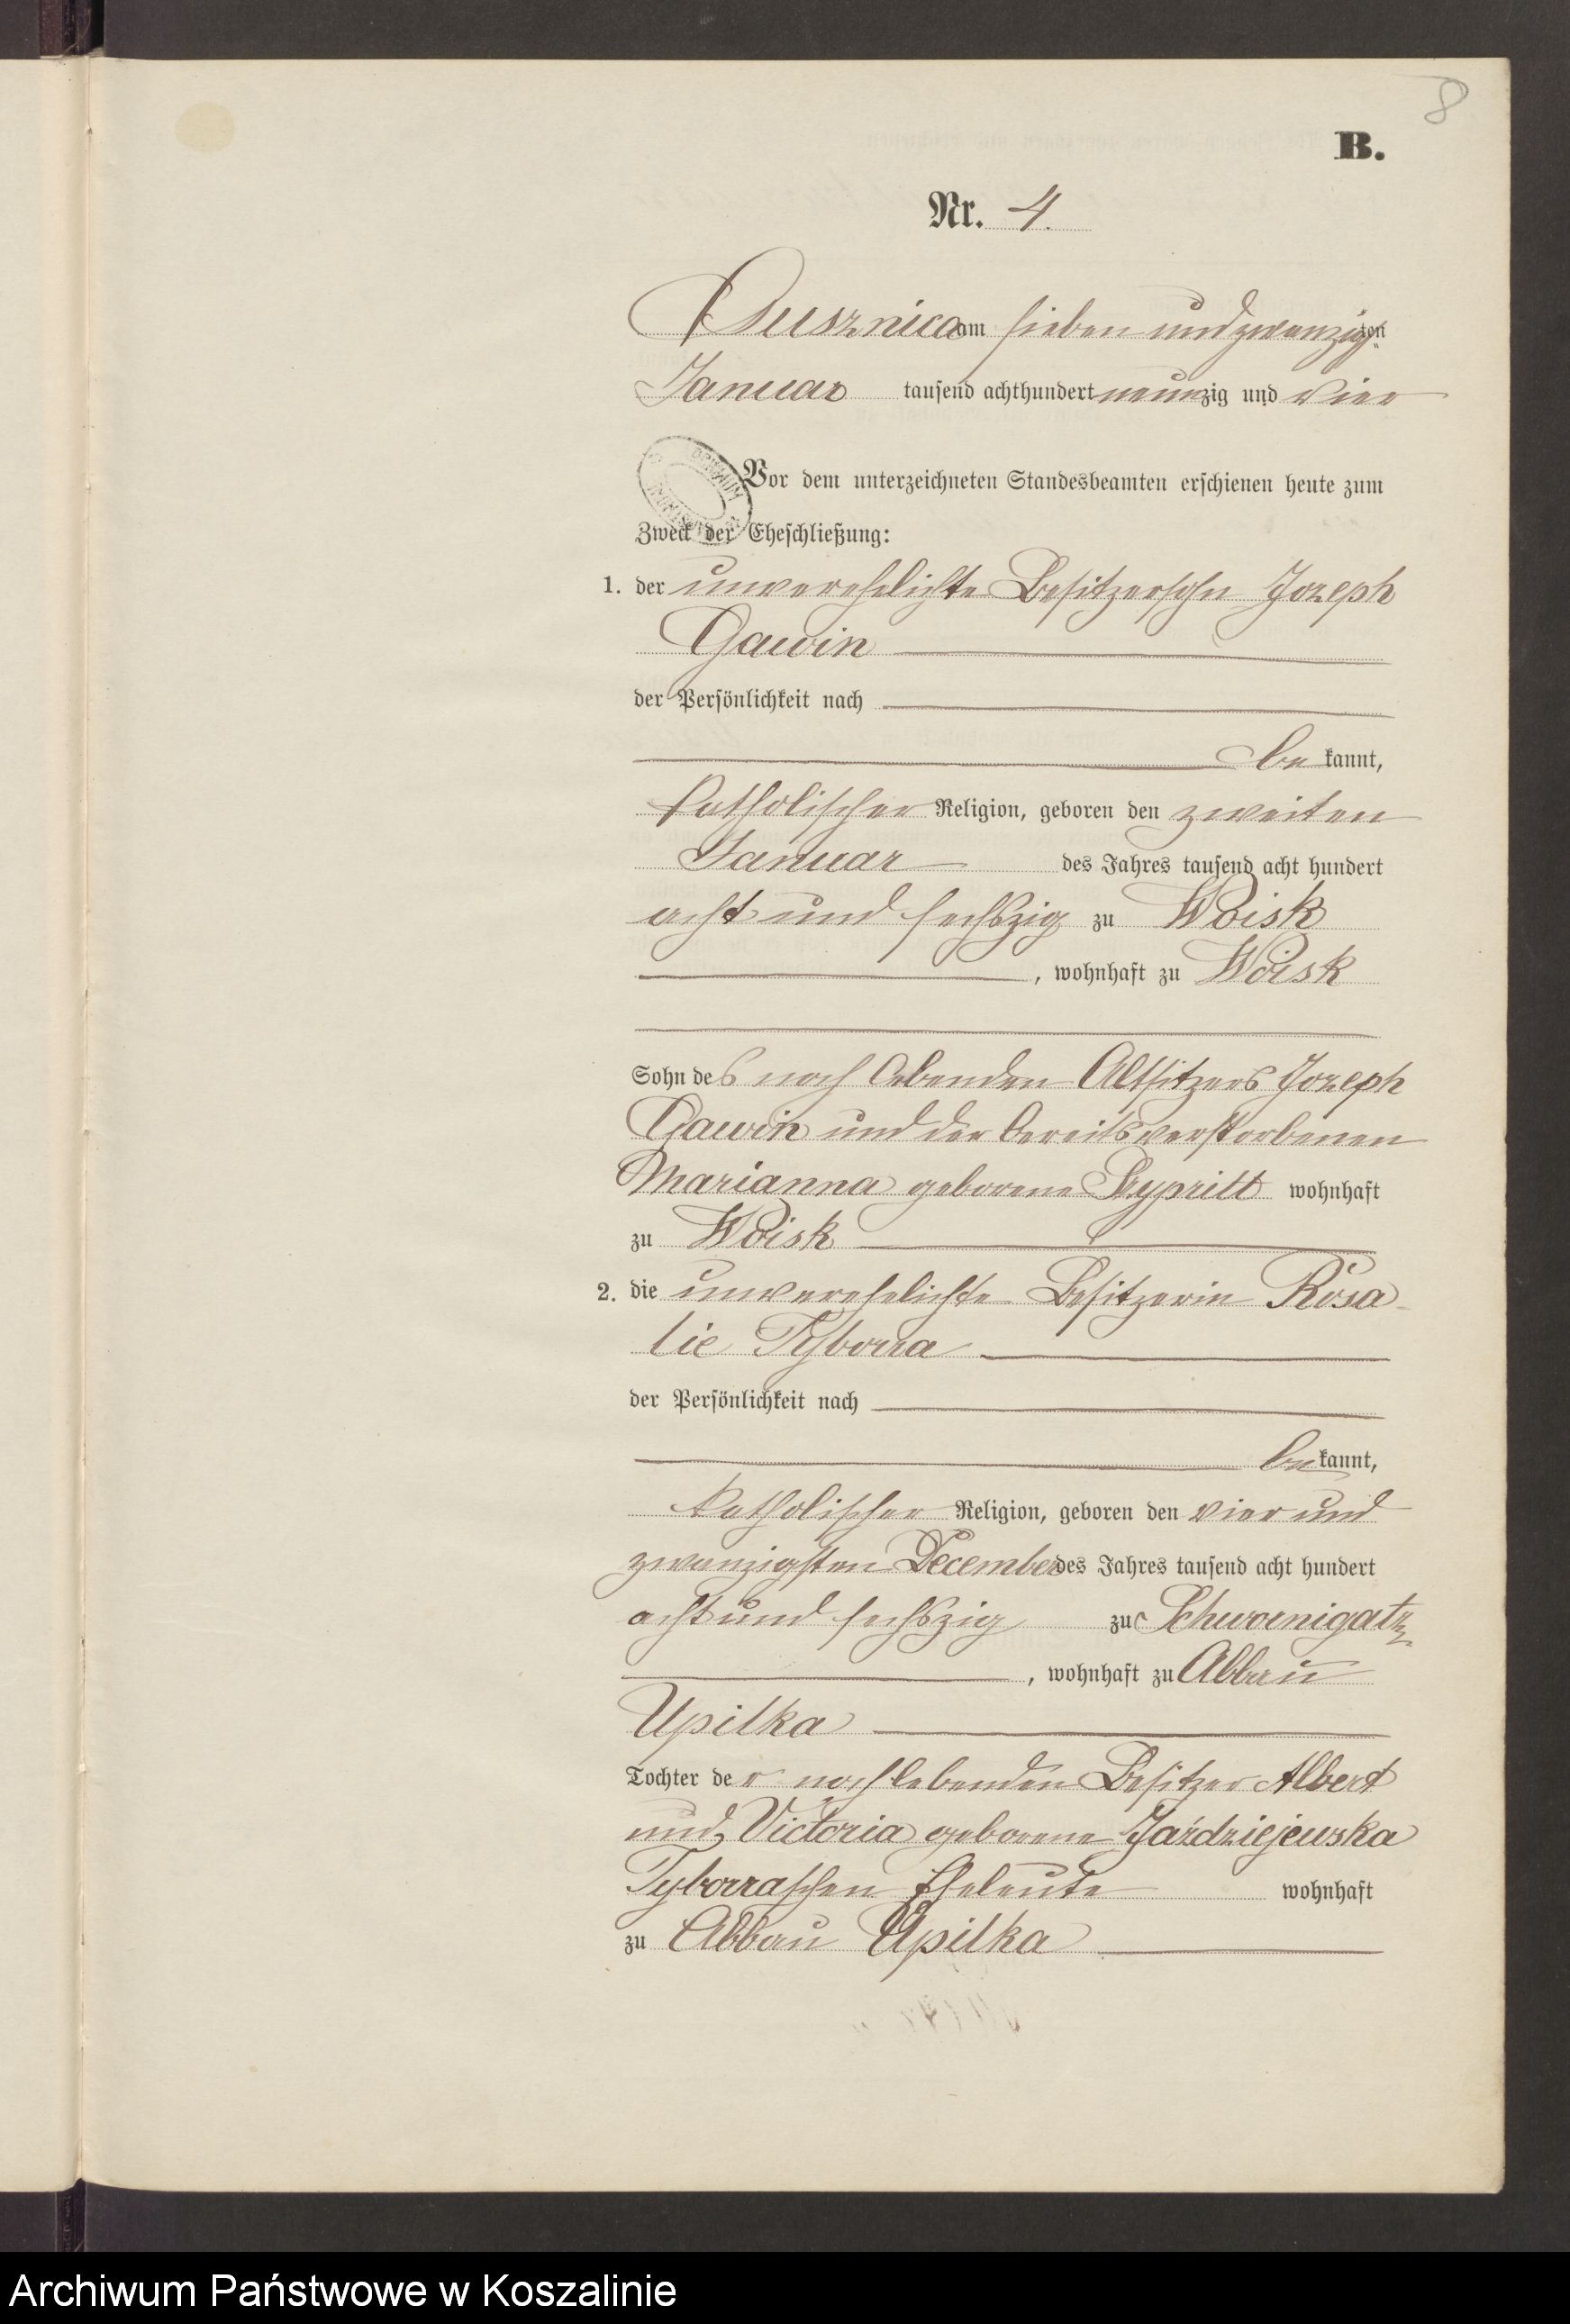 8
B.
Nr. 4.
Pusznica am sieben und zwanzigsten
Januar tausend achthundert neunzig und vier
Vor dem unterzeichneten Standesbeamten erschienen heute zum
Zweck der Eheschließung:
1. der unverehelichte Besitzersohn Joseph
Gawin
der Persönlichkeit nach
be kannt,
katholischer Religion, geboren den zweiten
Januar des Jahres tausend acht hundert
acht und sechszig zu Woisk
, wohnhaft zu Woisk
Sohn des noch lebenden Altsitzers Joseph
Gawin und der bereits verstorbenen
Marianna geborene wohnhaft
zu Woisk
2. die unverehelichte Besitzerin Rosa-
lie Tyborra
der Persönlichkeit nach
be kannt,
katholischer Religion, geboren den vier und
zwanzigsten December des Jahres tausend acht hundert
acht und sechszig zu Schwornigatz
, wohnhaft zu Abbau
Upilka
Tochter der noch lebenden Besitzer Albert
und Victoria geborene Jaździejewska
Tyborraschen Eheleute wohnhaft
zu Abbau Upilka
Archiwum Państwowe w Koszalinie